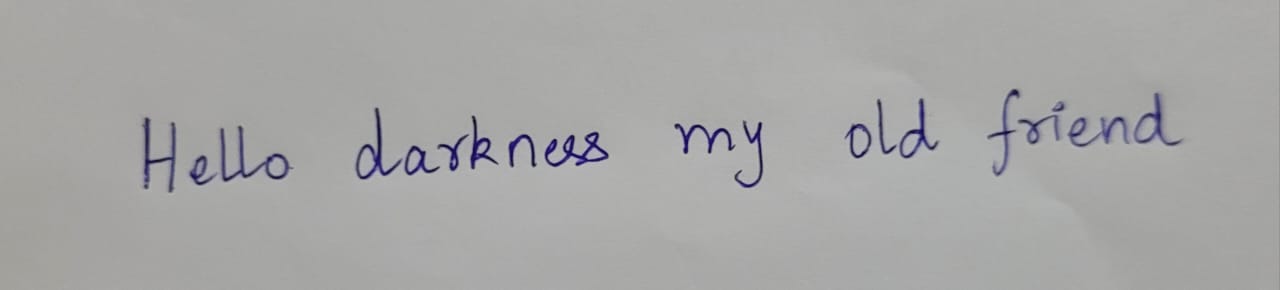 Hello darkness my old friend